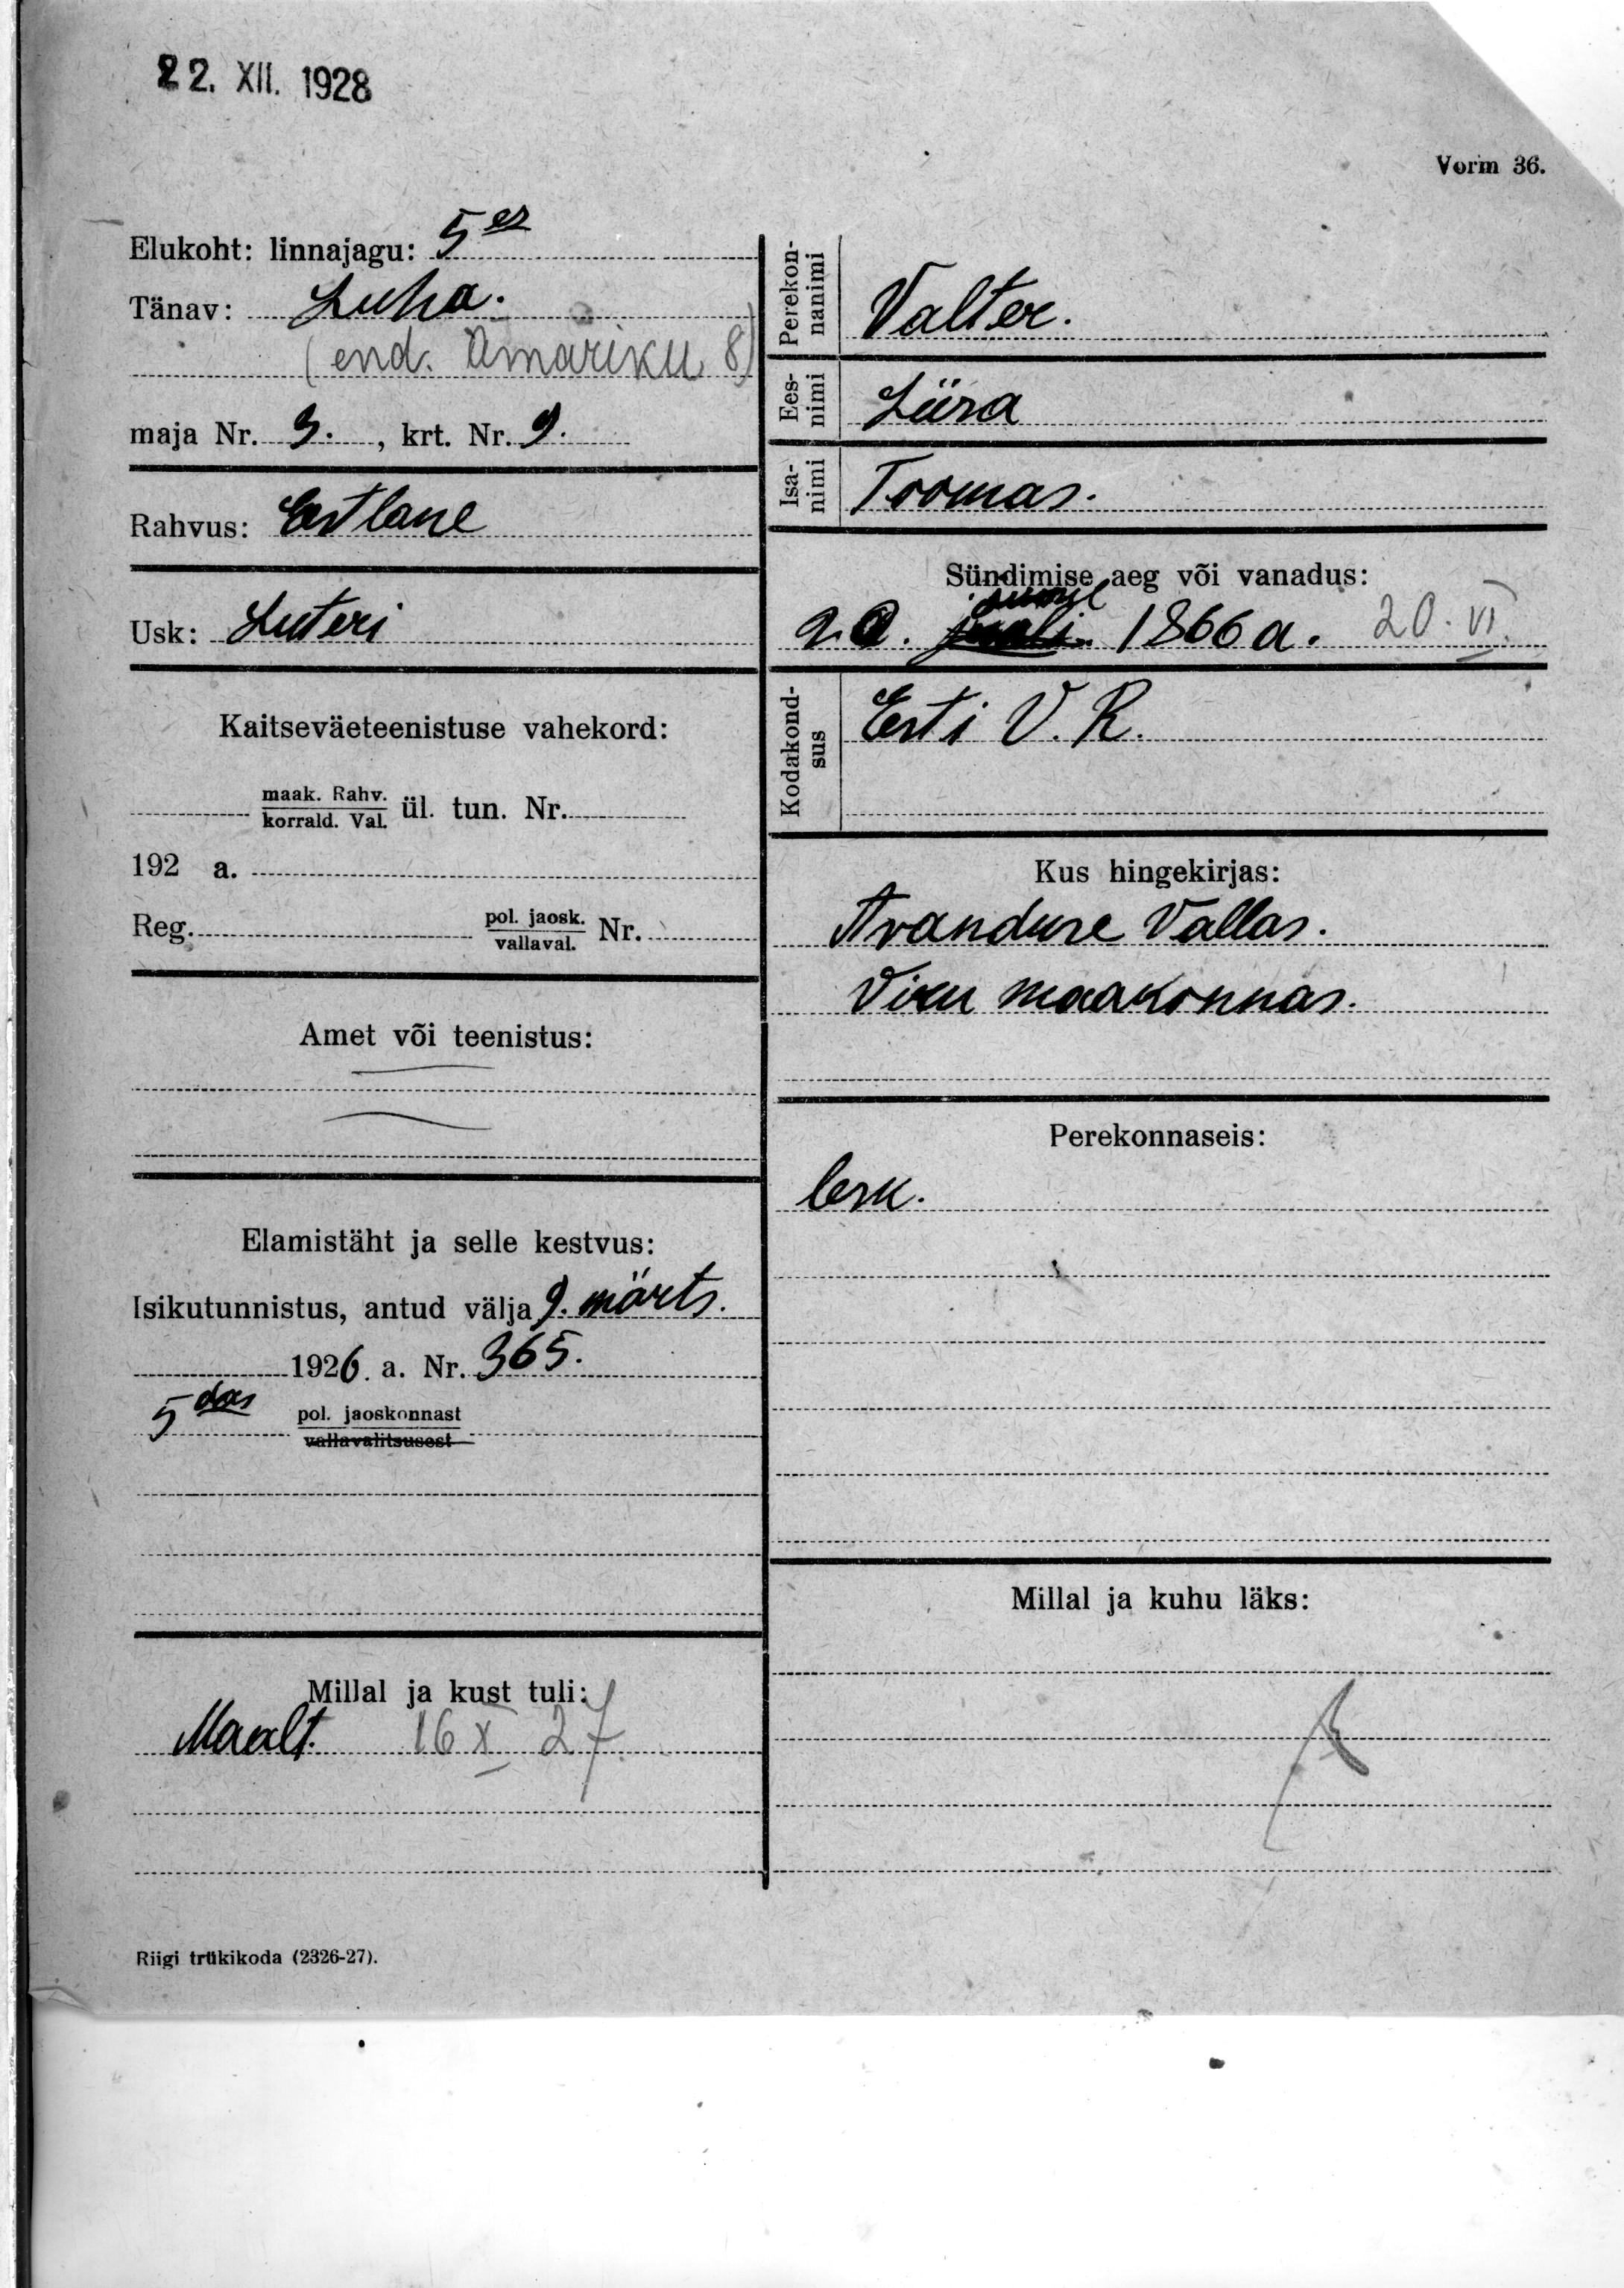 22. XII. 1928
Vorm 36.
Elukoht: linnajagu: 5es
Tänav: Luha.
(end. Ameriku 8)
maja Nr. 3. , krt. Nr. 9.
Rahvus: Eestlane
Usk: Luteri
Kaitseväeteenistuse vahekord:
maak. Rahv.
korrald. Val. ül. tun. Nr.
192 a.
Reg. pol. jaosk.
vallaval. Nr.
Amet või teenistus:
Elamistäht ja selle kestvus:
Isikutunnistus, antud välja 9. märts.
1926. a. Nr. 365.
5das pol. jaoskonnast
vallavalitsusest
Millal ja kust tuli:
Maalt. 16 X 27
Riigi trükikoda (2326-27).
Perekonnanimi
Valter.
Eesnimi
Liira
Isanimi
Toomas.
Sündimise aeg või vanadus:
juunil
20. juuli 1866 a. 20. VI.
Kodakondsus
Eesti V. R.
Kus hingekirjas:
Avanduse Vallas.
Viru maakonnas.
Perekonnaseis:
lesk.
Millal ja kuhu läks: